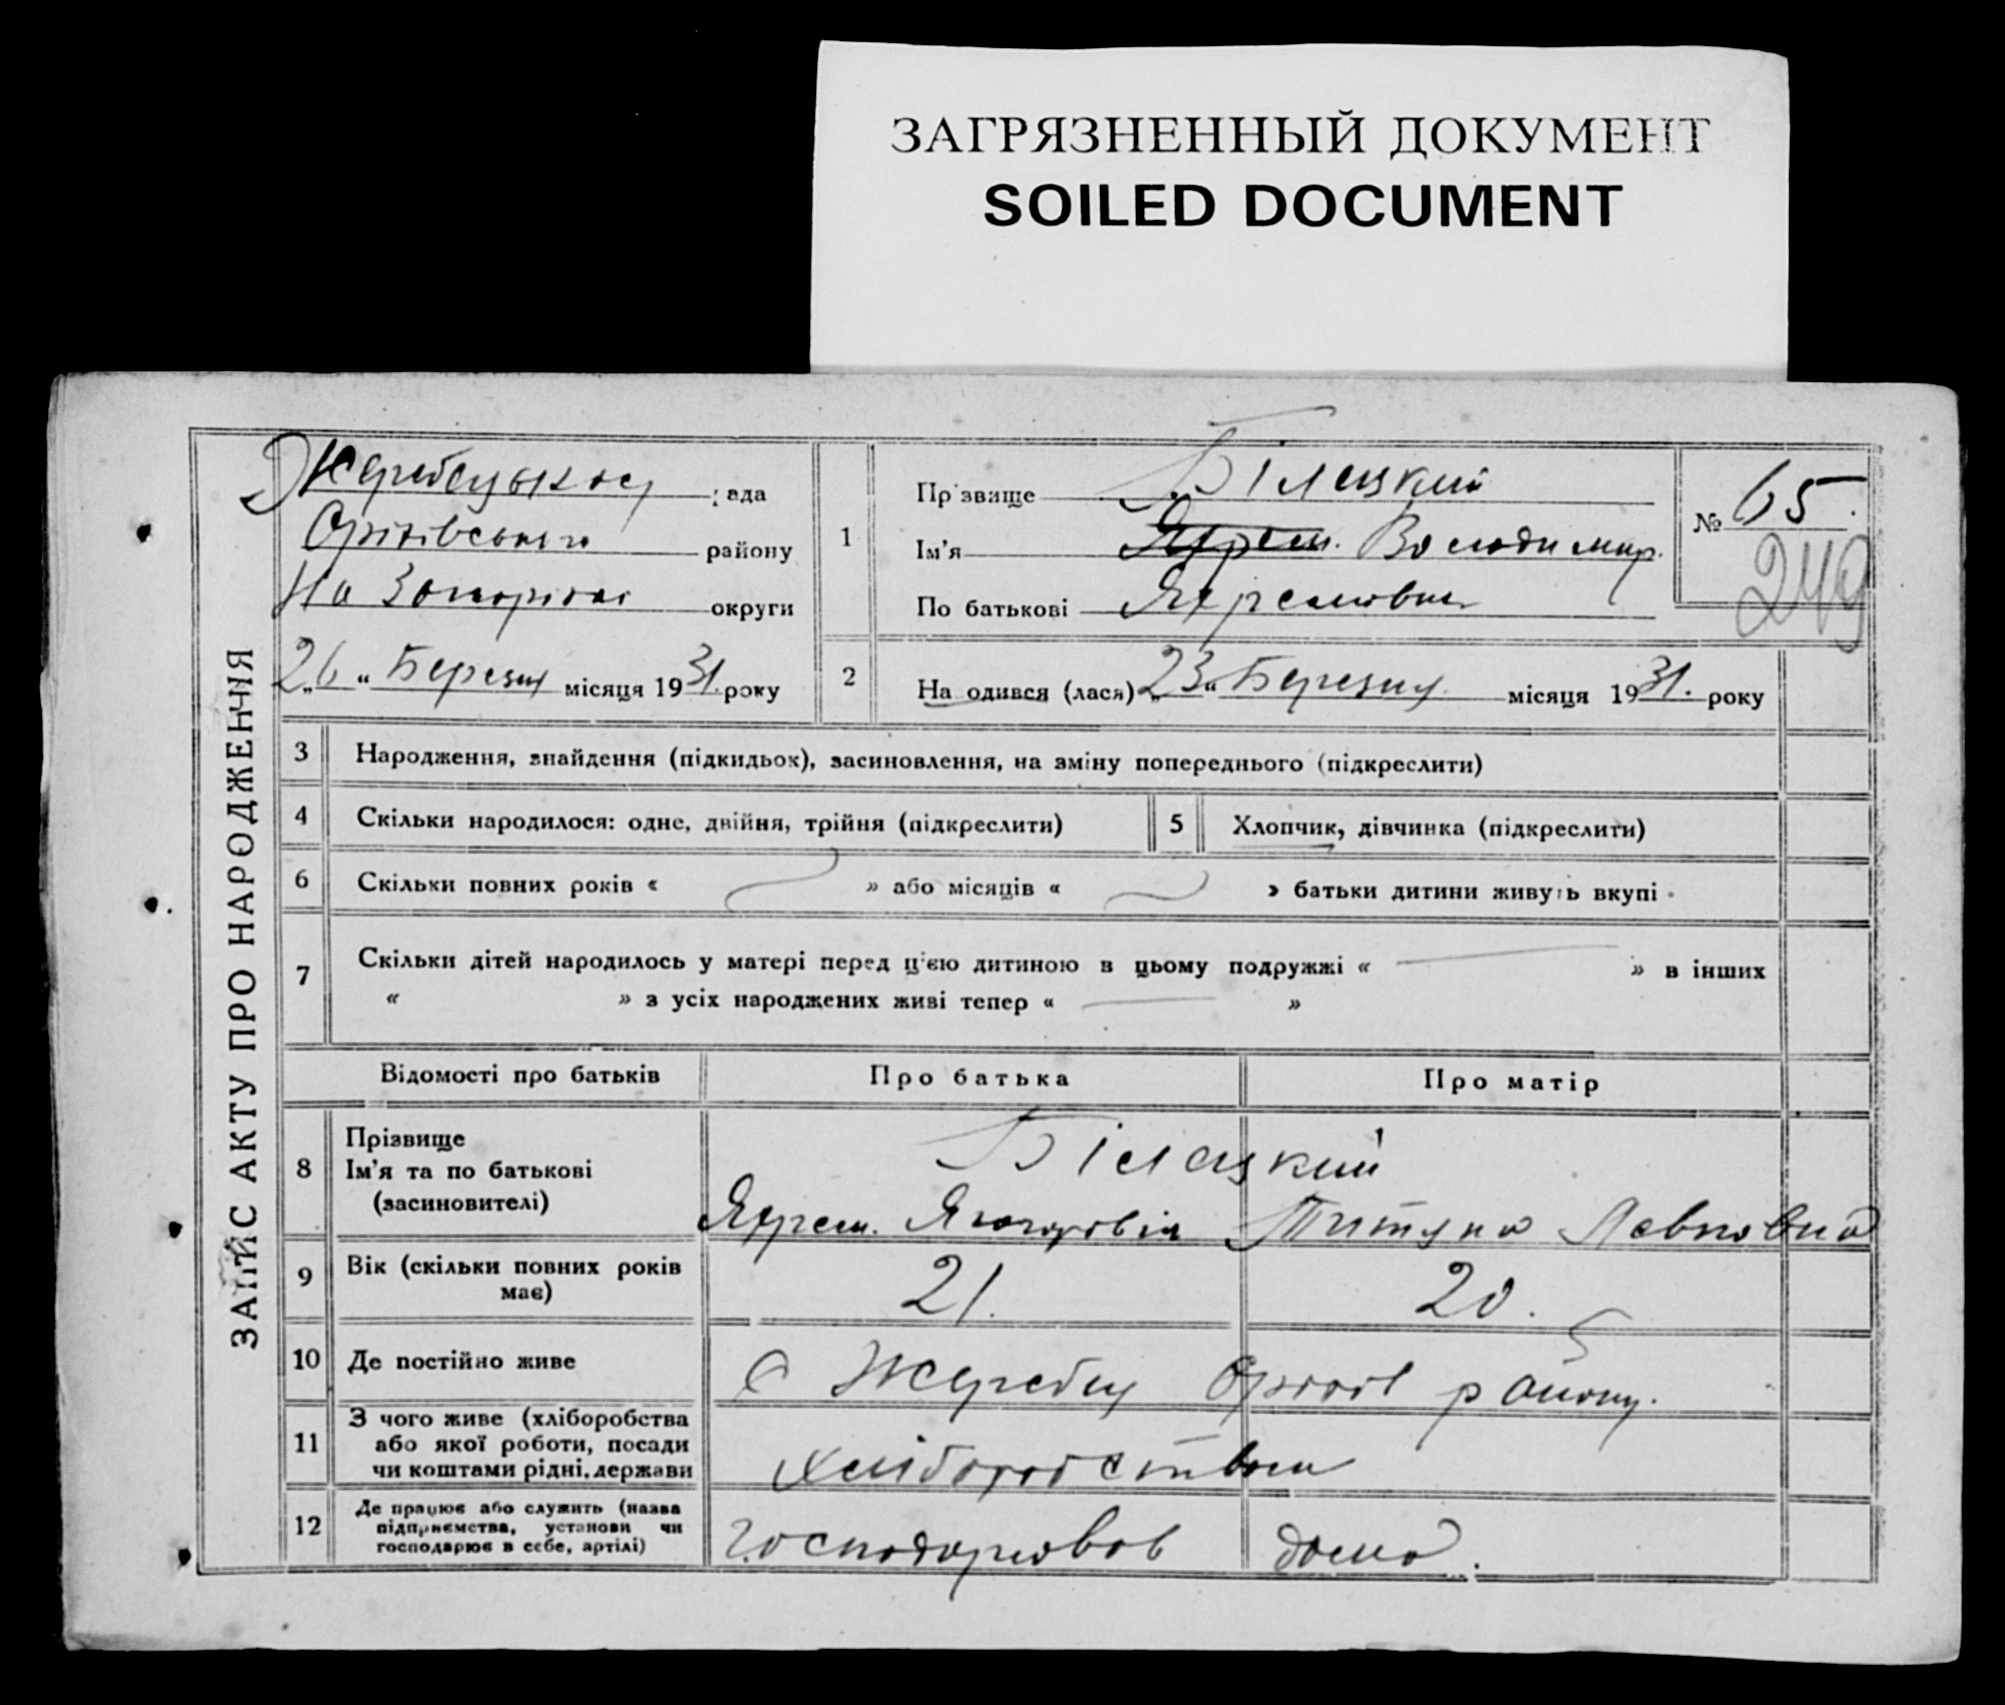 ЗАГРЯЗНЕННЫЙ ДОКУМЕНТ
SOILED DOCUMENT
ЗАПИС АКТУ ПРО НАРОДЖЕННЯ
рада
Оріхівського району
На округи
26 „ “ Березня місяця 1931. року
1
Прізвище Білецкий
Ім'я Володимир.
По батькові
№ 65.
249
2
Народився (лася) „23“ Березня місяця 1931. року
3 Народження, знайдення (підкидьок), засиновлення, на зміну попереднього (підкреслити)
4 Скільки народилося: одне, двійня, трійня (підкреслити)
5 Хлопчик, дівчинка (підкреслити)
6 Скільки повних років « » або місяців « » батьки дитини живуть вкупі
7 Скільки дітей народилось у матері перед ц'єю дитиною в цьому подружжі « — » в інших
« » з усіх народжених живі тепер « — »
Відомості про батьків Про батька Про матір
8 Прізвище
Ім'я та по батькові
(засиновителі)
Білецкий
Явновна
9 Вік (скільки повних років
має)
21. 20.
10 Де постійно живе
с Жеребец Оріхів району.
11 З чого живе (хліборобства
або якої роботи, посади
чи коштами рідні, держави
хліборобством
12 Де працює або служить (назва
підприємства, установи чи
господарює в себе, артілі)
господарював дома.